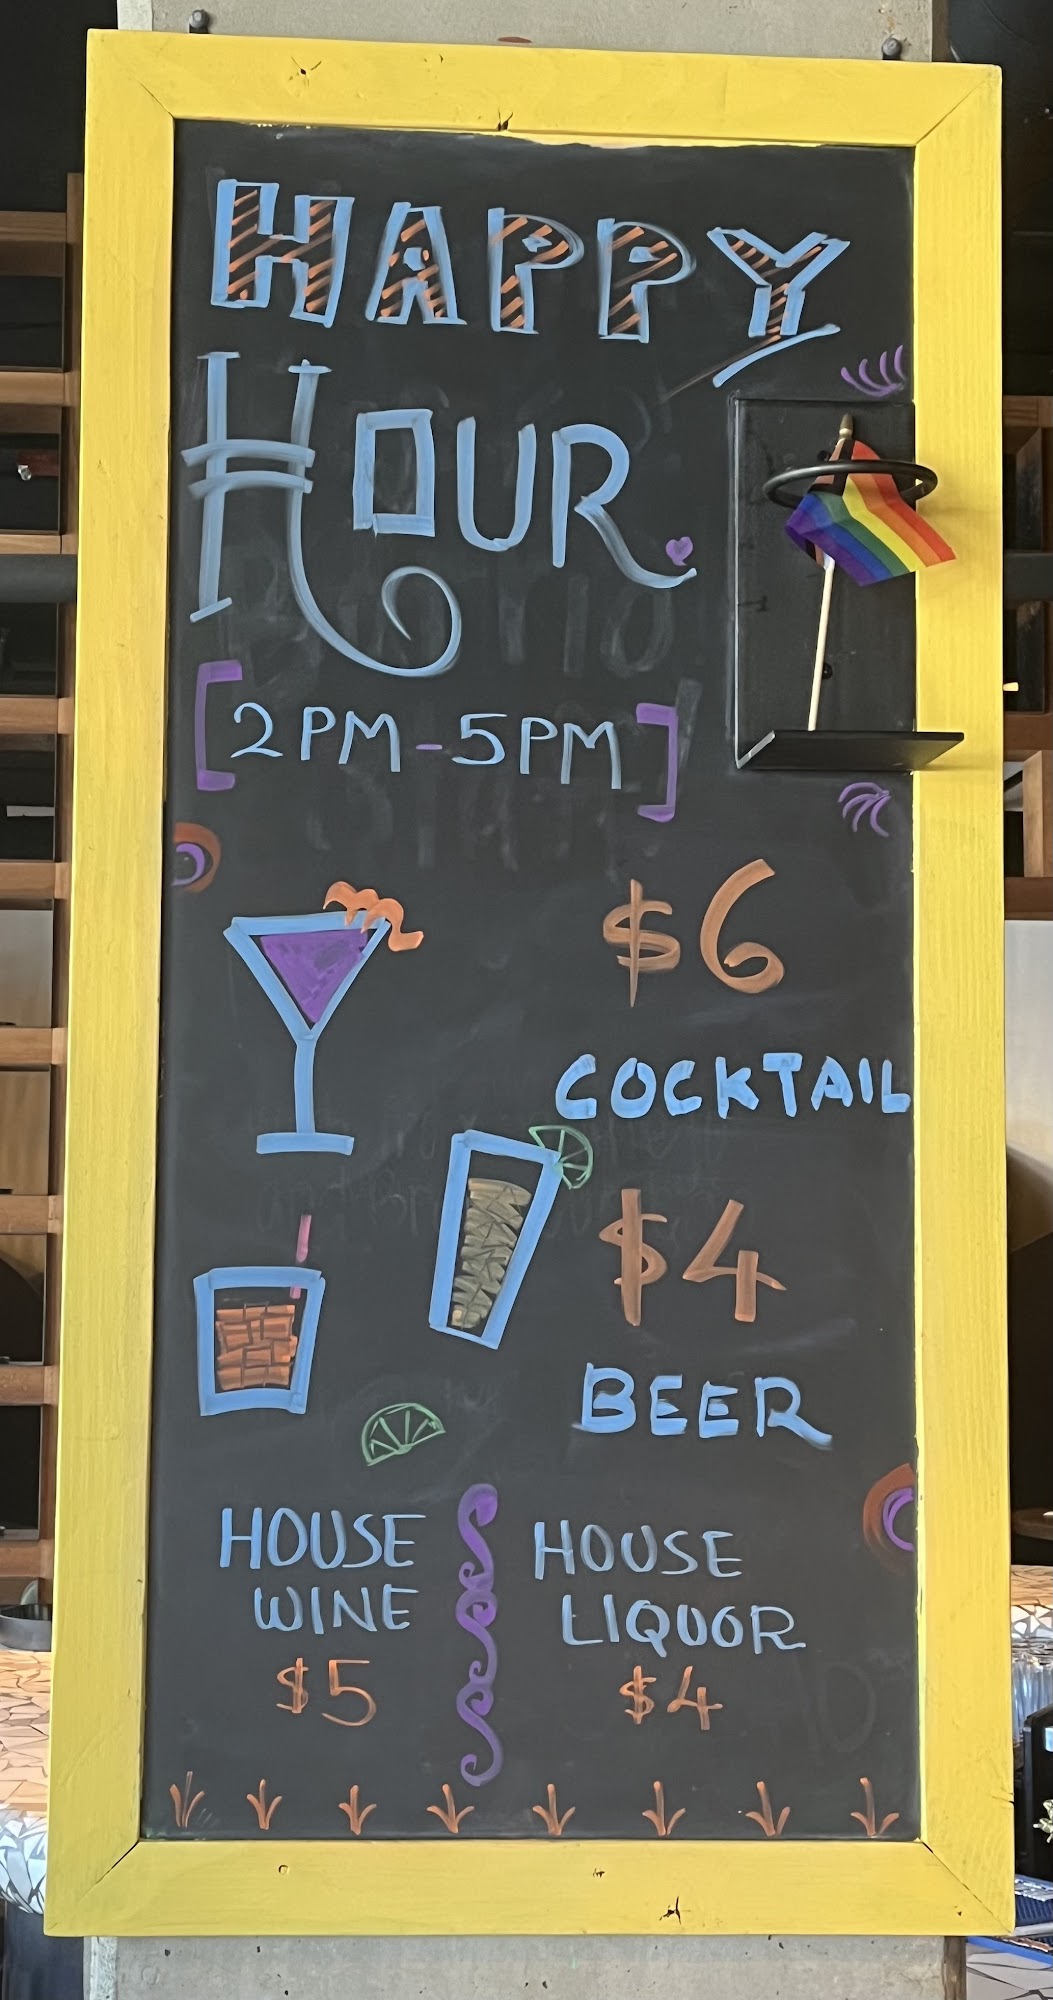 HAPPY
HOUR
[2PM-5PM]
$6
COCKTAIL
$4
BEER
HOUSE
WINE
$5
HOUSE
LIQUOR
$4